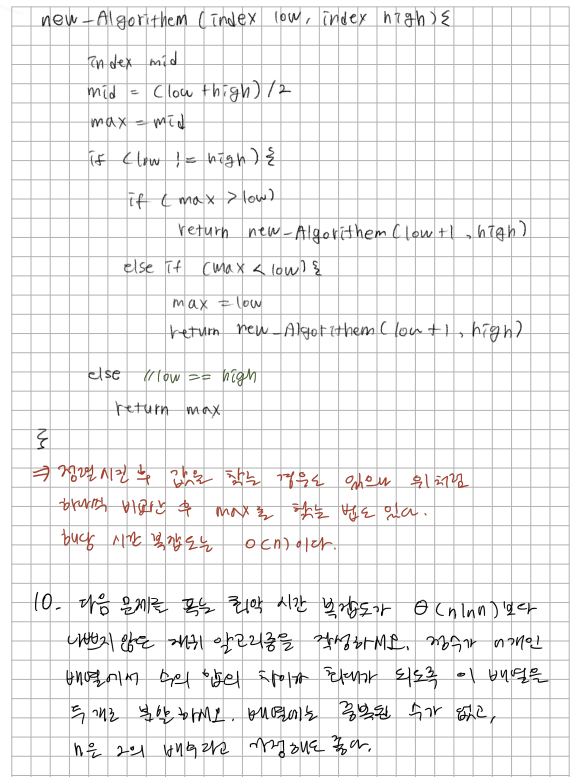 new-Algorithem (index low, index high){
index mid
mid = (low +high) /2
max = mid
if (low != high) {
if ( max > low)
return new-Algorithem (low+1 , high)
else if (max < low) {
max = low
return new-Algorithem ( low +1 , high)
else //low == high
return max
}
⇒ 정렬시킨 후 값을 찾는 경우도 있으나 위처럼
하나씩 비교한 후 max를 찾는 법도 있다.
해당 시간 복잡도는 O(n)이다.
10. 다음 문제를 푸는 최악 시간 복잡도가 Θ(nlnn)보다
나쁘지 않은 재귀 알고리즘을 작성하시오. 정수가 n개인
배열에서 수의 합의 차이가 최대가 되도록 이 배열을
두 개로 분할하시오. 배열에는 중복된 수가 없고,
n은 2의 배수라고 가정해도 좋다.